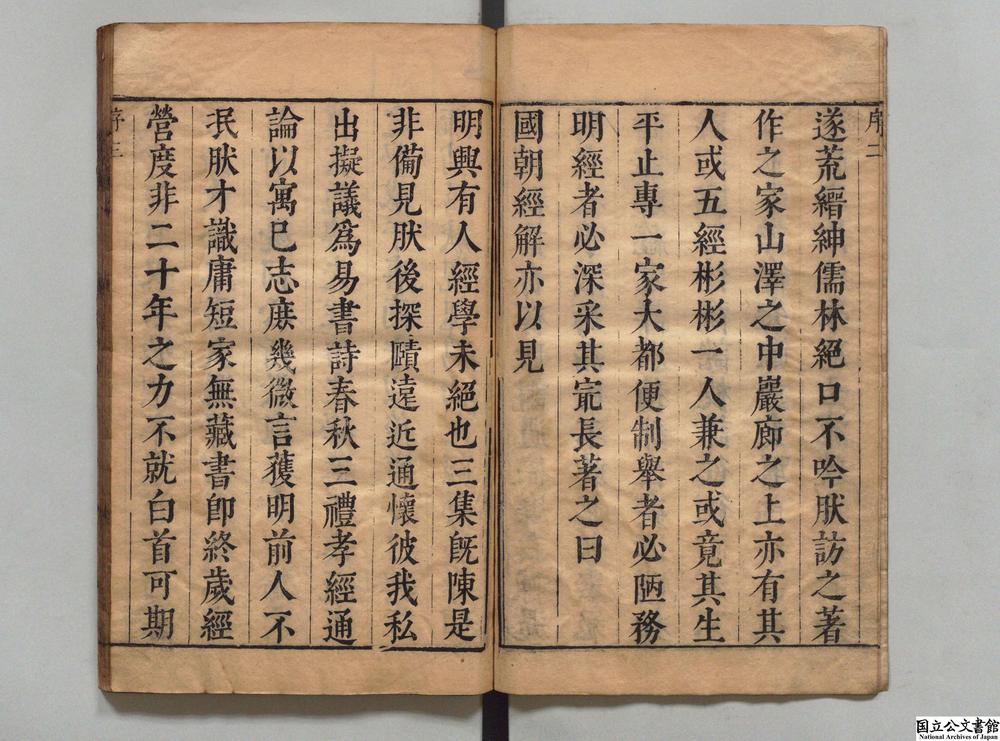 序二
遂荒縉紳儒林絕口不吟肰訪之著
作之家山澤之中巖廊之上亦有其
人或五經彬彬一人兼之或竟其生
平止專一家大都便制舉者必陋務
明經者必深采其宂長著之曰
國朝經解亦以見
明興有人經學未絕也三集旣陳是
非備見肰後探賾遠近通懷彼我私
出擬議為易書詩春秋三禮孝經通
論以寓已志庶幾微言獲明前人不
泯肰才識庸短家無藏書即終歲經
營度非二十年之力不就白首可期
序三
国立公文書館
National Archives of Japan